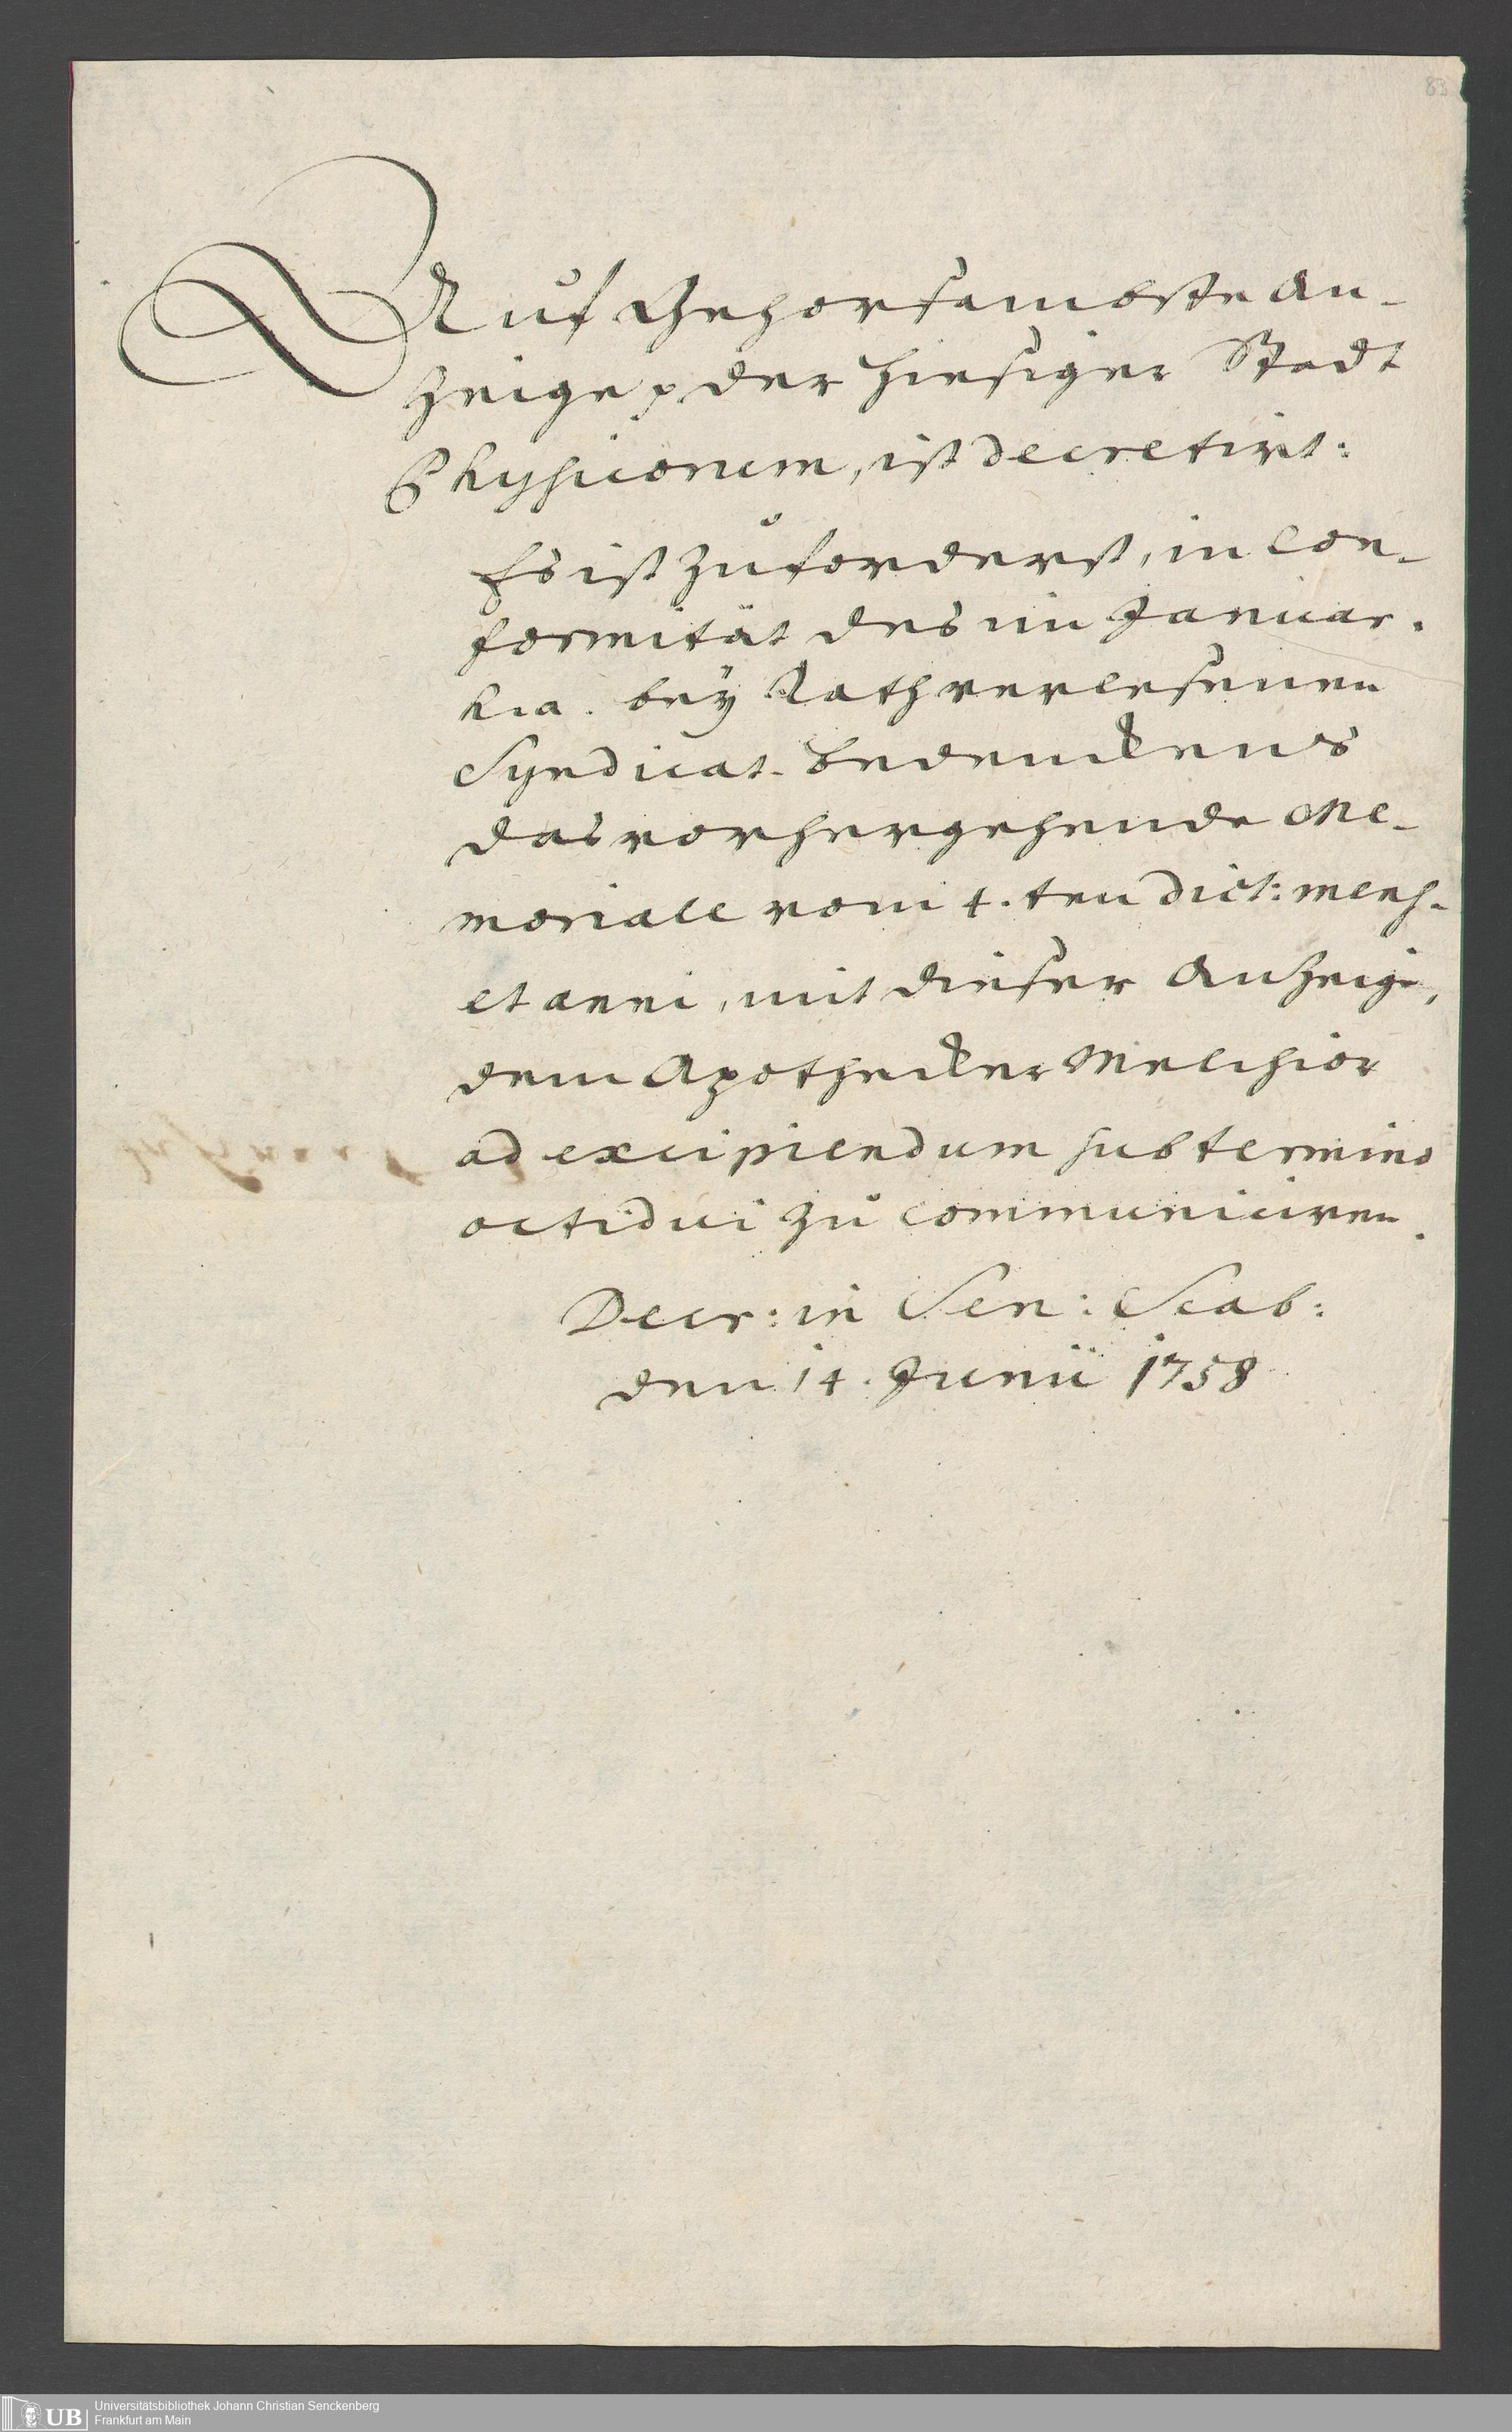 83
Auf Gehorsambste An-
zeige p. der hiesiger Stadt
Physicorum, ist decretirt:
Es ist zuforderst, in Con-
formität des im Januar.
h. a. bey Rath verlesenen
Syndicat-Bedenckens
das vorhergehende Me-
moriale vom 4.ten dict: mens.
et anni, mit dieser Anzeige,
dem Apothecker Melchior
ad excipiendum sub termino
octidui zu communiciren.
Decr: in Sen: Scab:
den 14. Junii 1758
UB
Universitätsbibliothek Johann Christian Senckenberg
Frankfurt am Main